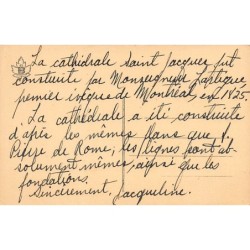 La cathédrale Saint Jacques fut
construite par Monseigneur Lartigue,
premier évèque de Montréal, en 1825.
La cathédrale a été construite
d'après les mêmes plans que
Pierre de Rome; les lignes sont ab-
solument mêmes, ainsi que les
fondations.
Sincèrement, Jacqueline.